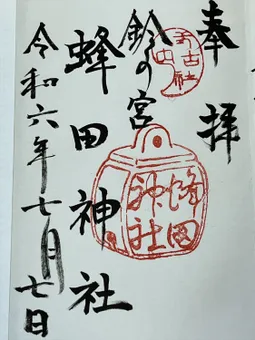 奉拝
式内
古社
鈴の宮
蜂田
神社
蜂田神社
令和六年七月七日